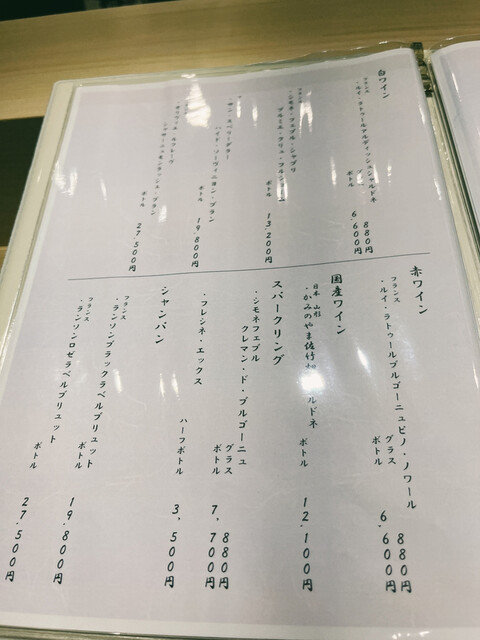 白ワイン
フランス
・ルイ・ラトゥールアルディッシュシャルドネ
880円
ボトル 6,600円
・シモネ・フェブル・シャブリ
プルミエ・クリュ・フルショーム
ボトル 13,200円
ハイド・ソーヴィニヨン・ブラン
ボトル 19,800円
シャサーニュモンラッシェ・ブラン
ボトル 27,500円
赤ワイン
フランス
・ルイ・ラトゥールブルゴーニュピノ・ノワール
グラス 880円
ボトル 6,600円
国産ワイン
日本 山形
・かみのやま佐竹 ルドネ
ボトル 12,100円
スパークリング
・シモネフェブル
クレマン・ド・ブルゴーニュ
グラス 880円
ボトル 7,700円
・フレシネ・エックス
ハーフボトル 3,500円
シャンパン
フランス
・ランソンブラックラベルブリュット
ボトル 19,800円
フランス
・ランソンロゼラベルブリュット
ボトル 27,500円